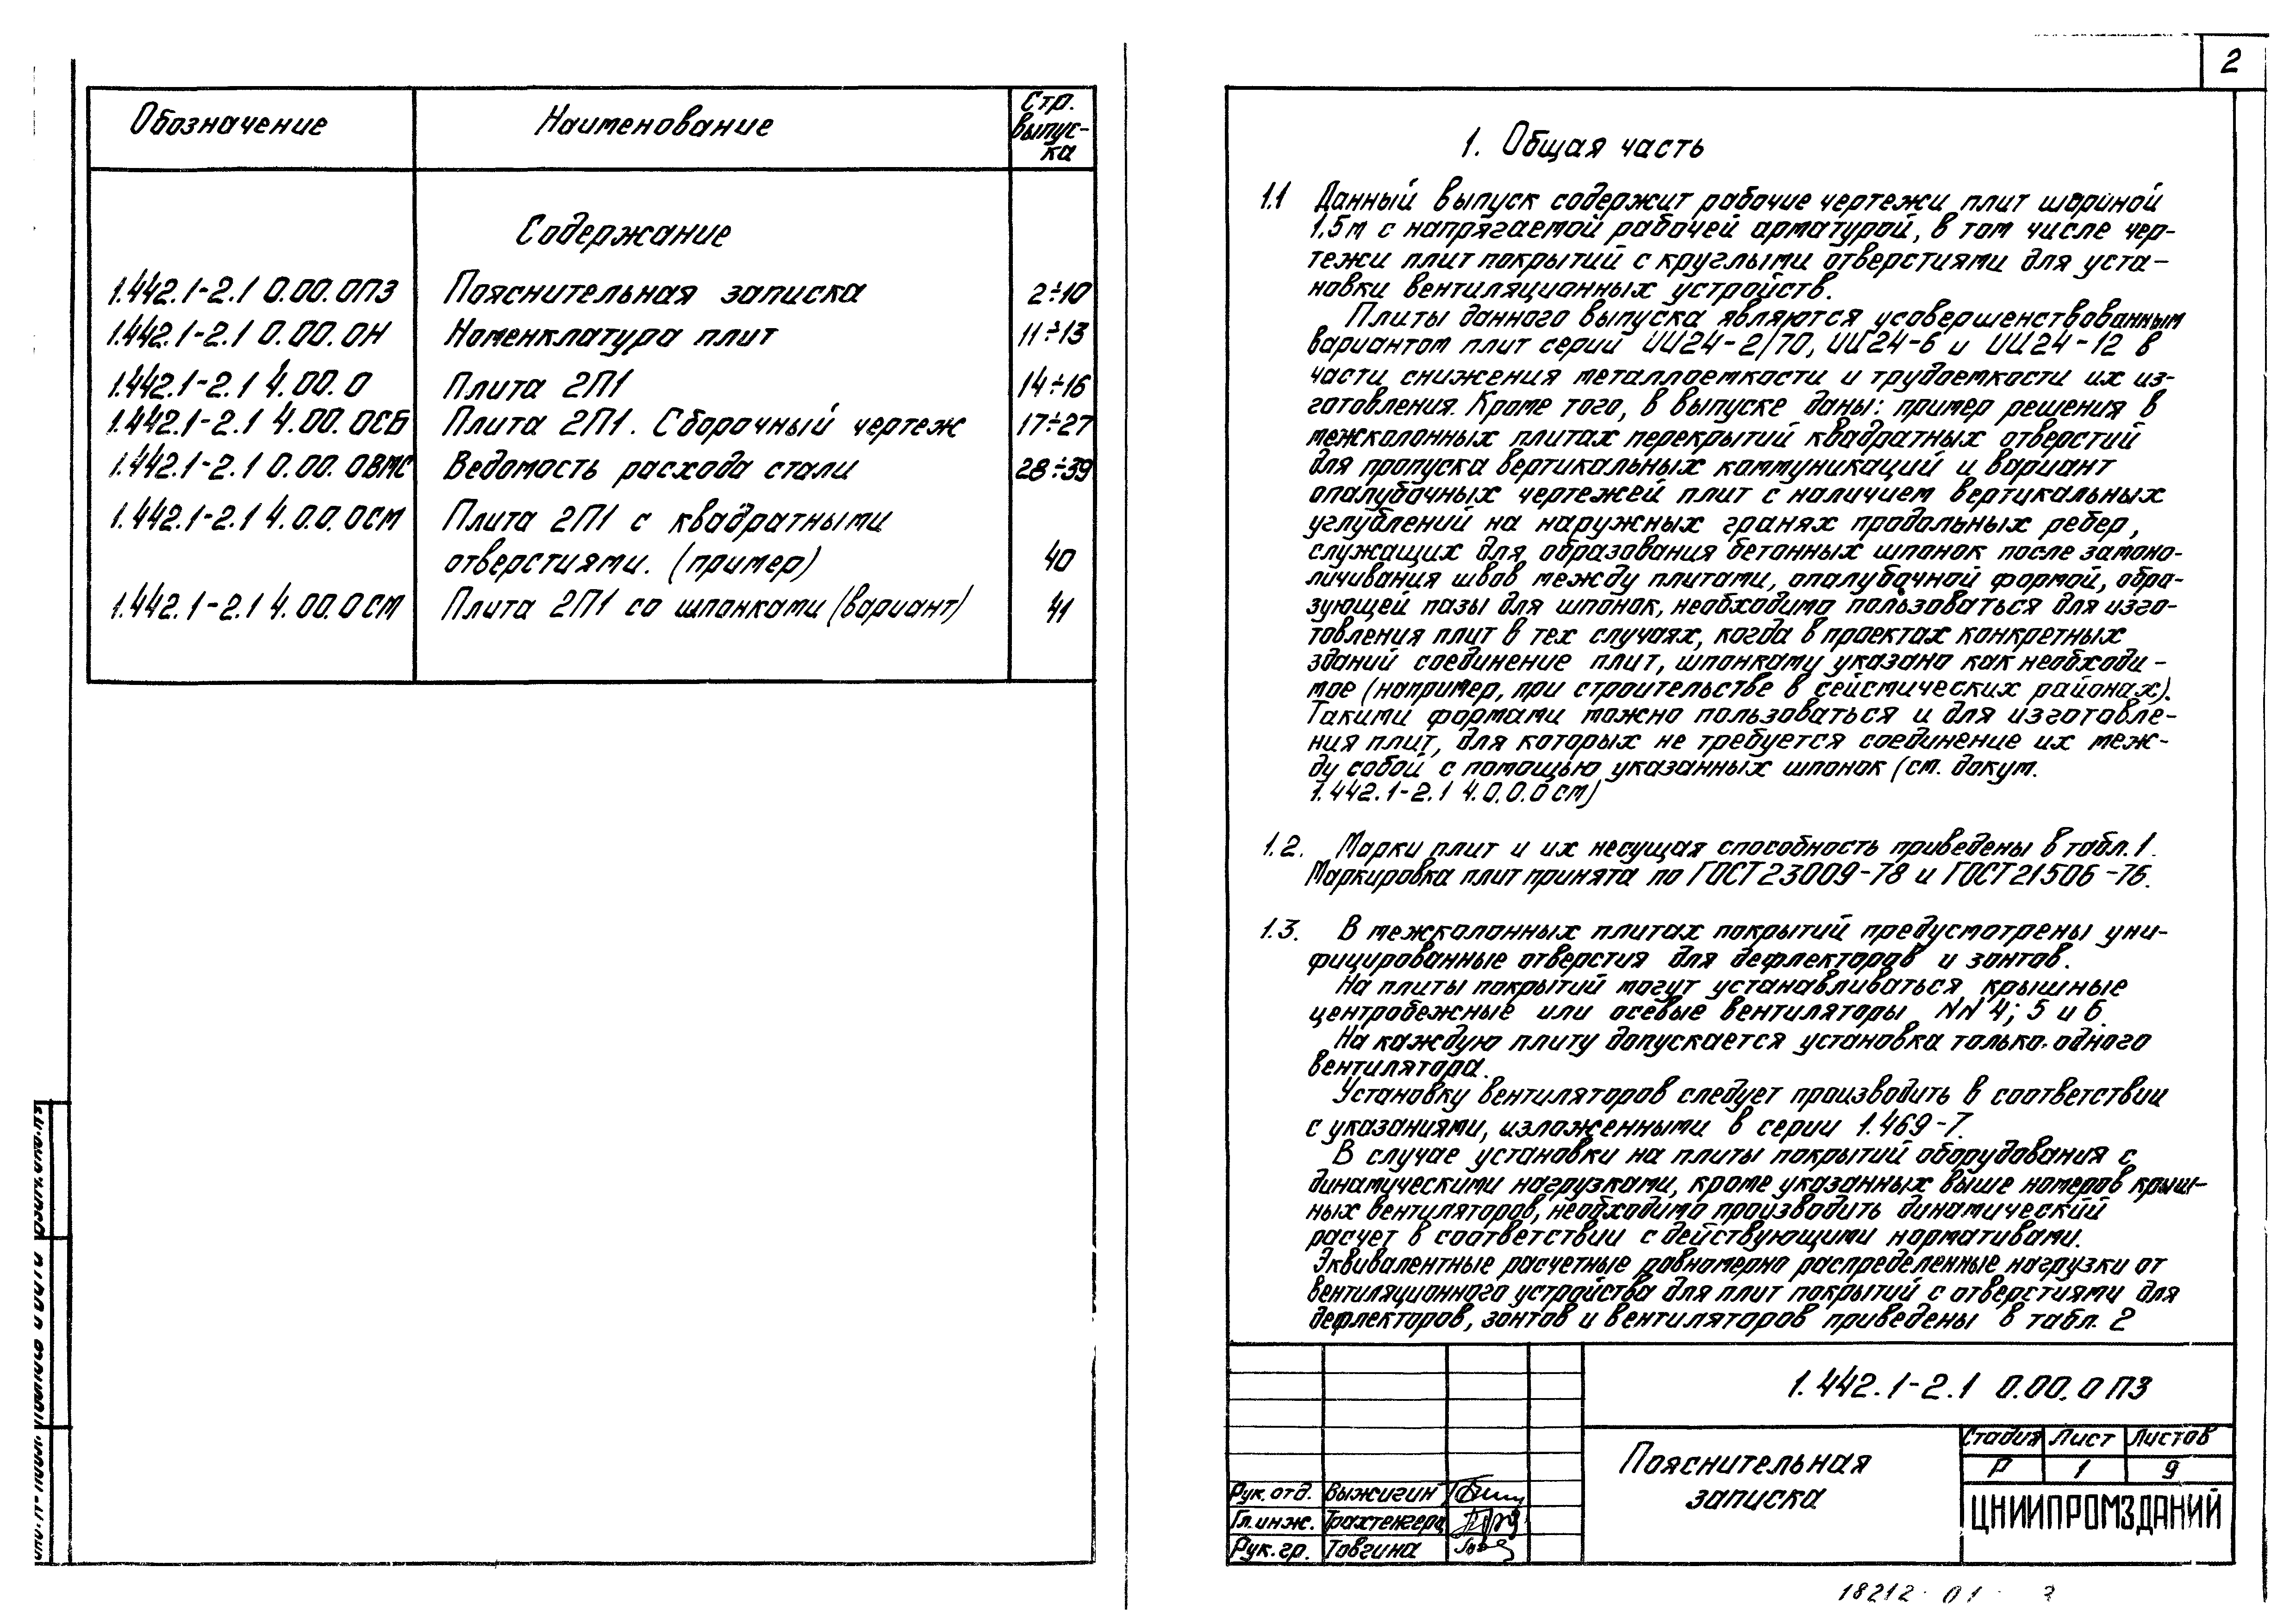 Обозначение Наименование Стр. выпус-ка
Содержание
1.442.1-2.1 0.00.0ПЗ Пояснительная записка 2÷10
1.442.1-2.1 0.00.0Н Номенклатура плит 11÷13
1.442.1-2.1 4.00.0 Плита 2П1 14÷16
1.442.1-2.1 4.00.0СБ Плита 2П1. Сборочный чертеж 17÷27
1.442.1-2.1 0.00.0ВМС Ведомость расхода стали 28÷39
1.442.1-2.1 4.0.0.0СМ Плита 2П1 с квадратными
отверстиями. (пример) 40
1.442.1-2.1 4.00.0СМ Плита 2П1 со шпонками (вариант) 41
2
1. Общая часть
1.1 Данный выпуск содержит рабочие чертежи плит шириной
1.5м с напрягаемой рабочей арматурой, в том числе чер-
тежи плит покрытий с круглыми отверстиями для уста-
новки вентиляционных устройств.
Плиты данного выпуска являются усовершенствованным
вариантом плит серий ИИ24-2/70, ИИ24-6 и ИИ24-12 в
части снижения металлоемкости и трудоемкости их из-
готовления. Кроме того, в выпуске даны: пример решения в
межколонных плитах перекрытий квадратных отверстий
для пропуска вертикальных коммуникаций и вариант
опалубочных чертежей плит с наличием вертикальных
углублений на наружных гранях продольных ребер,
служащих для образования бетонных шпонок после замоно-
личивания швов между плитами, опалубочной формой, обра-
зующей пазы для шпонок, необходимо пользоваться для изго-
товления плит в тех случаях, когда в проектах конкретных
зданий соединение плит, шпонками указано как необходи-
мое (например, при строительстве в сейсмических районах).
Такими формами можно пользоваться и для изготовле-
ния плит, для которых не требуется соединение их меж-
ду собой с помощью указанных шпонок (см. докум.
1.442.1-2.1 4.0.0.0см)
1.2. Марки плит и их несущая способность приведены в табл.1.
Маркировка плит принята по ГОСТ23009-78 и ГОСТ21506-76.
1.3. В межколонных плитах покрытий предусмотрены уни-
фицированные отверстия для дефлекторов и зонтов.
На плиты покрытий могут устанавливаться крышные
центробежные или осевые вентиляторы NN 4; 5 и 6.
На каждую плиту допускается установка только одного
вентилятора.
Установку вентиляторов следует производить в соответствии
с указаниями, изложенными в серии 1.469-7.
В случае установки на плиты покрытий оборудования с
динамическими нагрузками, кроме указанных выше номеров крыш-
ных вентиляторов, необходимо производить динамический
расчет в соответствии с действующими нормативами.
Эквивалентные расчетные равномерно распределенные нагрузки от
вентиляционного устройства для плит покрытий с отверстиями для
дефлекторов, зонтов и вентиляторов приведены в табл. 2
1.442.1-2.1 0.00.0ПЗ
Пояснительная
записка
Стадия Лист Листов
Р 1 9
ЦНИИПРОМЗДАНИЙ
Рук. отд. Выжигин
Гл. инж. Трахтенгерц
Рук. гр. Товгина
18212-01 3